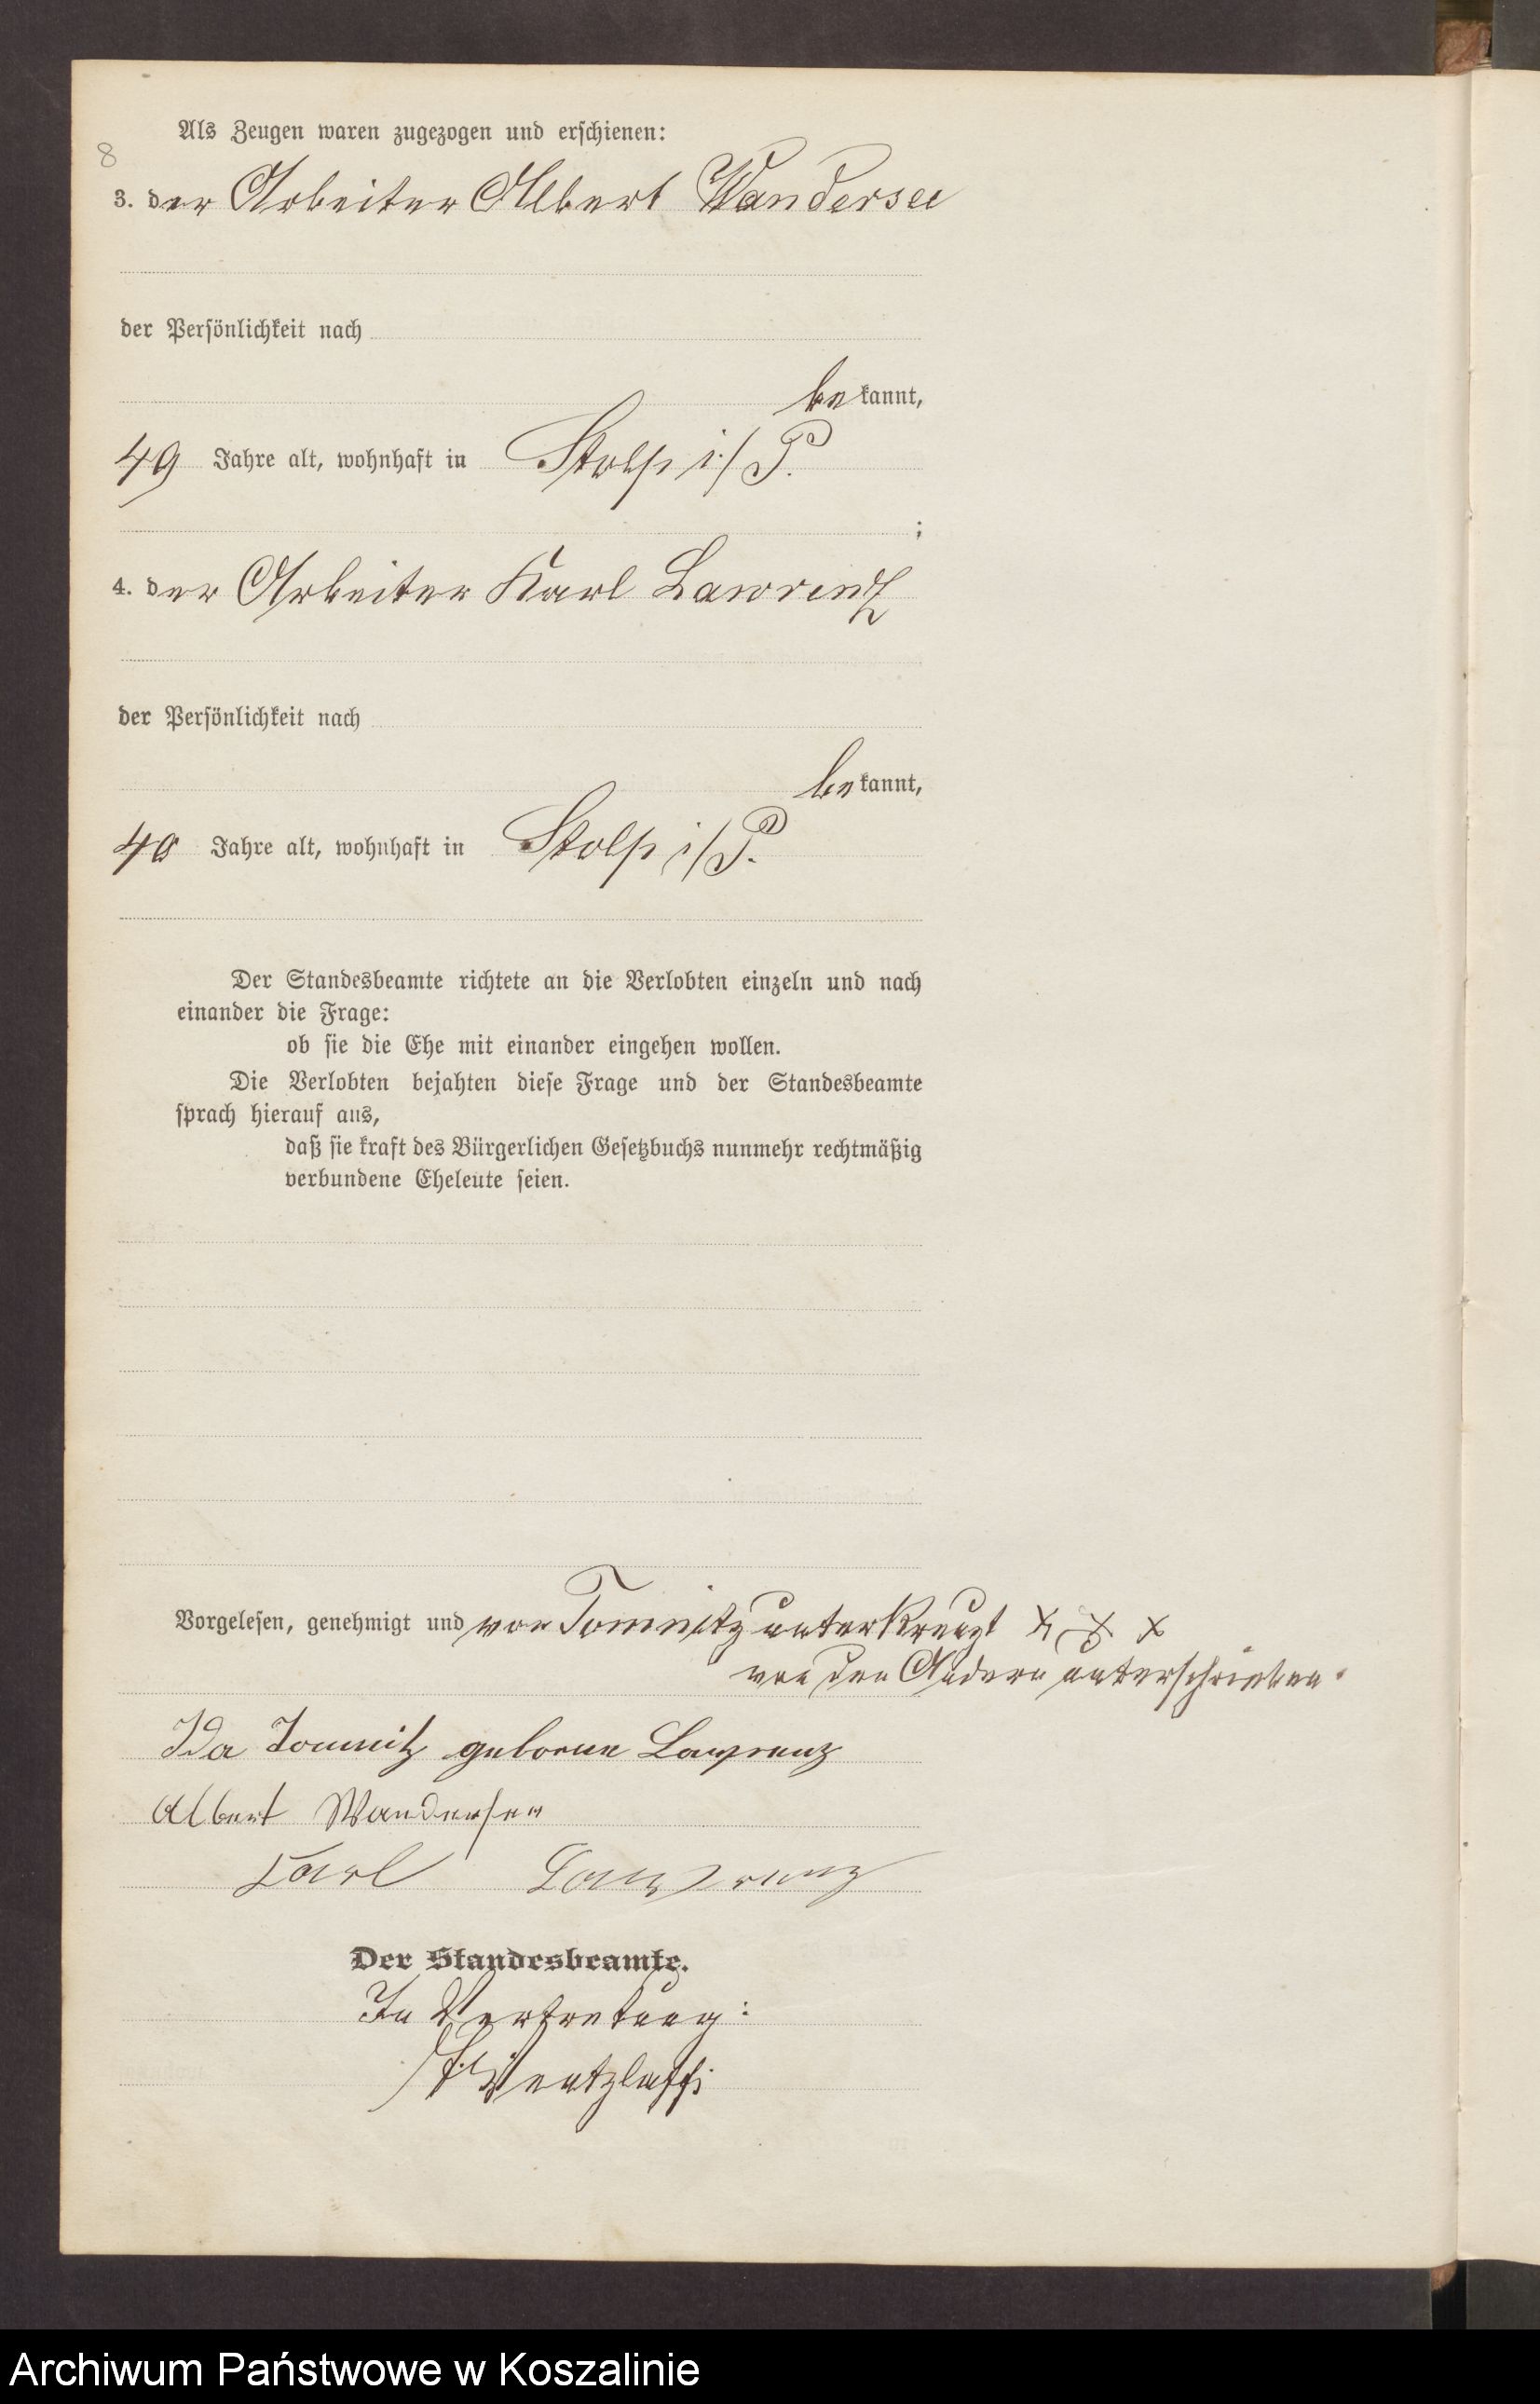 Als Zeugen waren zugezogen und erschienen:
8
3. der Arbeiter Albert Wandersee
der Persönlichkeit nach
bekannt,
49 Jahre alt, wohnhaft in Stolp i/P.
;
4. der Arbeiter Karl Lawrenz
der Persönlichkeit nach
bekannt,
40 Jahre alt, wohnhaft in Stolp i/P.
Der Standesbeamte richtete an die Verlobten einzeln und nach
einander die Frage:
ob sie die Ehe mit einander eingehen wollen.
Die Verlobten bejahten diese Frage und der Standesbeamte
sprach hierauf aus,
daß sie kraft des Bürgerlichen Gesetzbuchs nunmehr rechtmäßig
verbundene Eheleute seien.
Vorgelesen, genehmigt und von Tomnitz unterkreuzt x x x
von den Andern unterschrieben.
Ida Tomnitz geborne Lawrenz
Albert Wandersee
Karl Lawrenz
Der Standesbeamte.
In Vertretung:
Wentzlaff
Archiwum Państwowe w Koszalinie